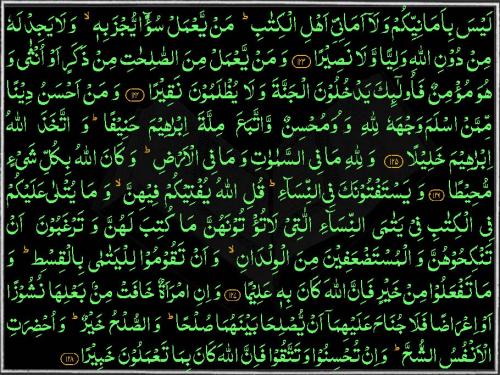 لَيْسَ بِاَمَانِيِّكُمْ وَلَاۤ اَمَانِىِّ اَهْلِ الْكِتٰبِ ؕ مَنْ يَّعْمَلْ سُوْٓءًا يُّجْزَ بِهٖ ۙ وَلَا يَجِدْ لَهٗ
مِنْ دُوْنِ اللّٰهِ وَلِيًّا وَّ لَا نَصِيْرًا ﴿۱۲۳﴾ وَ مَنْ يَّعْمَلْ مِنَ الصّٰلِحٰتِ مِنْ ذَكَرٍ اَوْ اُنْثٰى وَ
هُوَ مُؤْمِنٌ فَاُولٰٓئِكَ يَدْخُلُوْنَ الْجَنَّةَ وَ لَا يُظْلَمُوْنَ نَقِيْرًا ﴿۱۲۴﴾ وَ مَنْ اَحْسَنُ دِيْنًا
مِّمَّنْ اَسْلَمَ وَجْهَهٗ لِلّٰهِ وَ هُوَ مُحْسِنٌ وَّاتَّبَعَ مِلَّةَ اِبْرٰهِيْمَ حَنِيْفًا ؕ وَ اتَّخَذَ اللّٰهُ
اِبْرٰهِيْمَ خَلِيْلًا ﴿۱۲۵﴾ وَ لِلّٰهِ مَا فِى السَّمٰوٰتِ وَ مَا فِى الْاَرْضِ ؕ وَ كَانَ اللّٰهُ بِكُلِّ شَىْءٍ
مُّحِيْطًا ﴿۱۲۶﴾ وَ يَسْتَفْتُوْنَكَ فِى النِّسَآءِ ؕ قُلِ اللّٰهُ يُفْتِيْكُمْ فِيْهِنَّ ۙ وَ مَا يُتْلٰى عَلَيْكُمْ
فِى الْكِتٰبِ فِىْ يَتٰمَى النِّسَآءِ الّٰتِىْ لَا تُؤْتُوْنَهُنَّ مَا كُتِبَ لَهُنَّ وَ تَرْغَبُوْنَ اَنْ
تَنْكِحُوْهُنَّ وَ الْمُسْتَضْعَفِيْنَ مِنَ الْوِلْدَانِ ۙ وَ اَنْ تَقُوْمُوْا لِلْيَتٰمٰى بِالْقِسْطِ ؕ وَ
مَا تَفْعَلُوْا مِنْ خَيْرٍ فَاِنَّ اللّٰهَ كَانَ بِهٖ عَلِيْمًا ﴿۱۲۷﴾ وَ اِنِ امْرَاَةٌ خَافَتْ مِنْۢ بَعْلِهَا نُشُوْزًا
اَوْ اِعْرَاضًا فَلَا جُنَاحَ عَلَيْهِمَاۤ اَنْ يُّصْلِحَا بَيْنَهُمَا صُلْحًا ؕ وَ الصُّلْحُ خَيْرٌ ؕ وَ اُحْضِرَتِ
الْاَنْفُسُ الشُّحَّ ؕ وَ اِنْ تُحْسِنُوْا وَ تَتَّقُوْا فَاِنَّ اللّٰهَ كَانَ بِمَا تَعْمَلُوْنَ خَبِيْرًا ﴿۱۲۸﴾